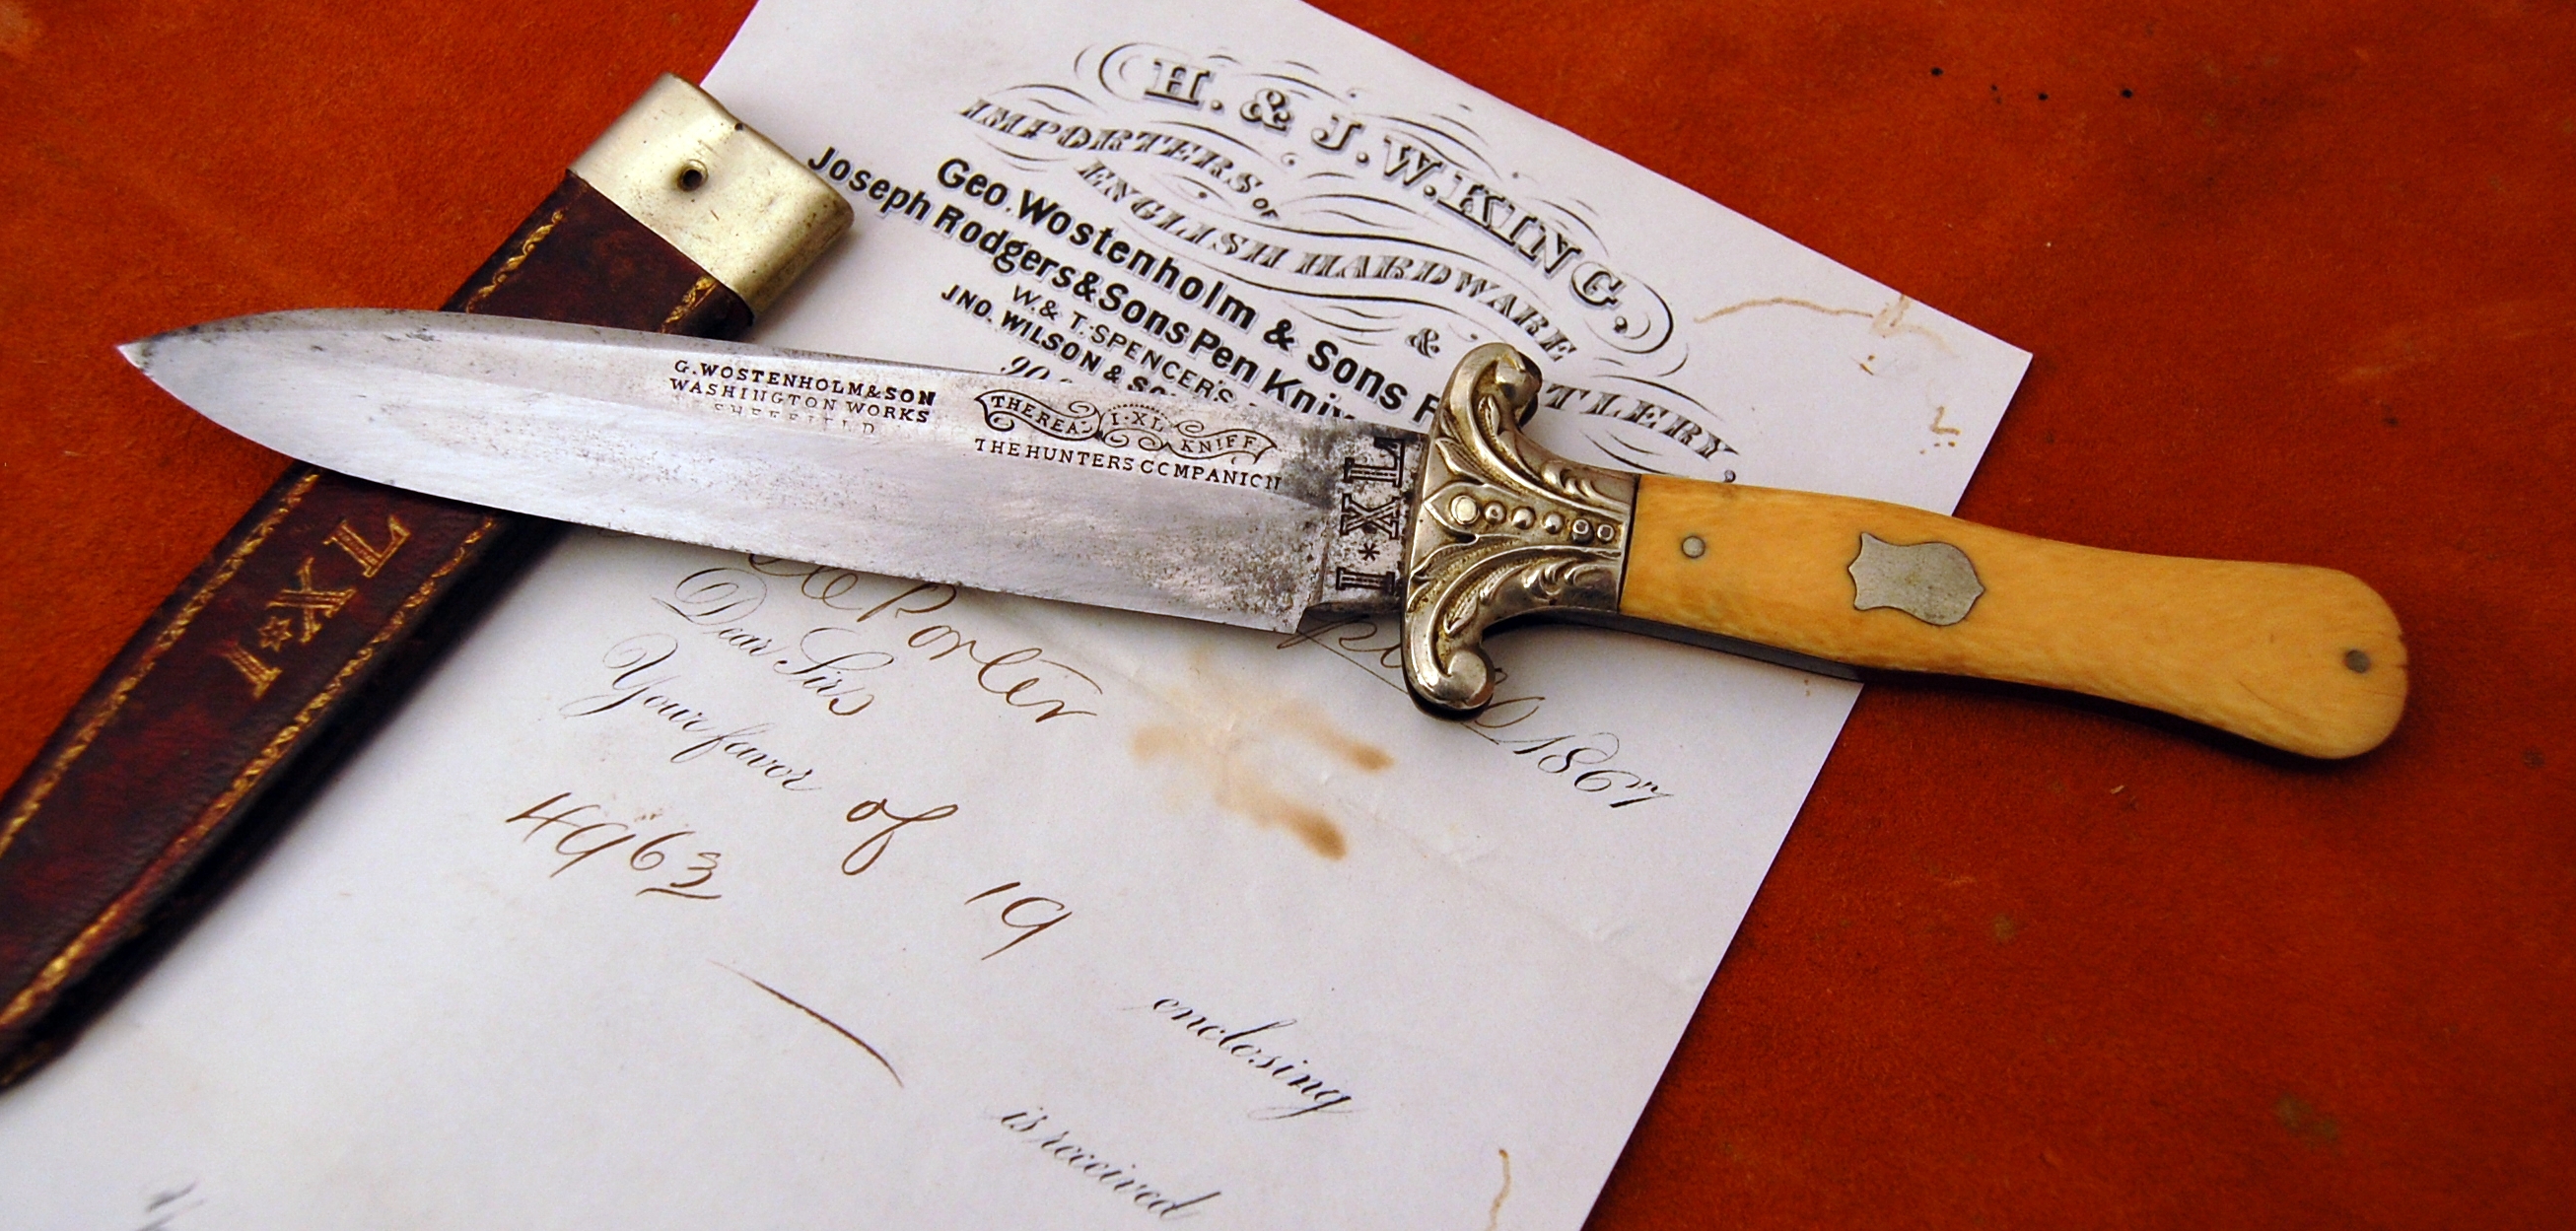 H. & J. W. KING,
IMPORTERS OF
ENGLISH HARDWARE
&
TLERY.
Geo. Wostenholm & Sons
Joseph Rodgers & Sons Pen Kniv
W. & T. SPENCER'S
JNO. WILSON & SO
G. WOSTENHOLM & SON
WASHINGTON WORKS
SHEFFIELD
THE REA I·XL KNIFE
THE HUNTERS COMPANION
I*XL
I*XL
1867
Porter
Dear Sirs
Your favor of 19
4963
enclosing
is received